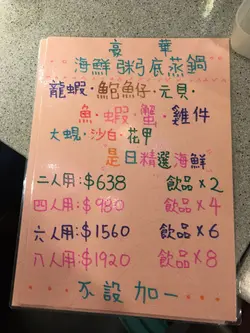 豪華
海鮮粥底蒸鍋
龍蝦·鮑魚仔·元貝·
魚·蝦·蟹·雞件
大蜆·沙白·花甲
是日精選海鮮
二人用:$638 飲品×2
四人用:$980 飲品×4
六人用:$1560 飲品×6
八人用:$1920 飲品×8
不設加一